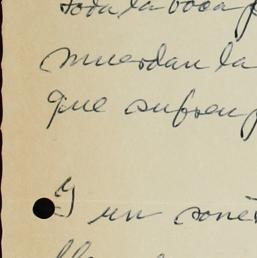 toda la boca
muerdan la
que sufren
Y un soné